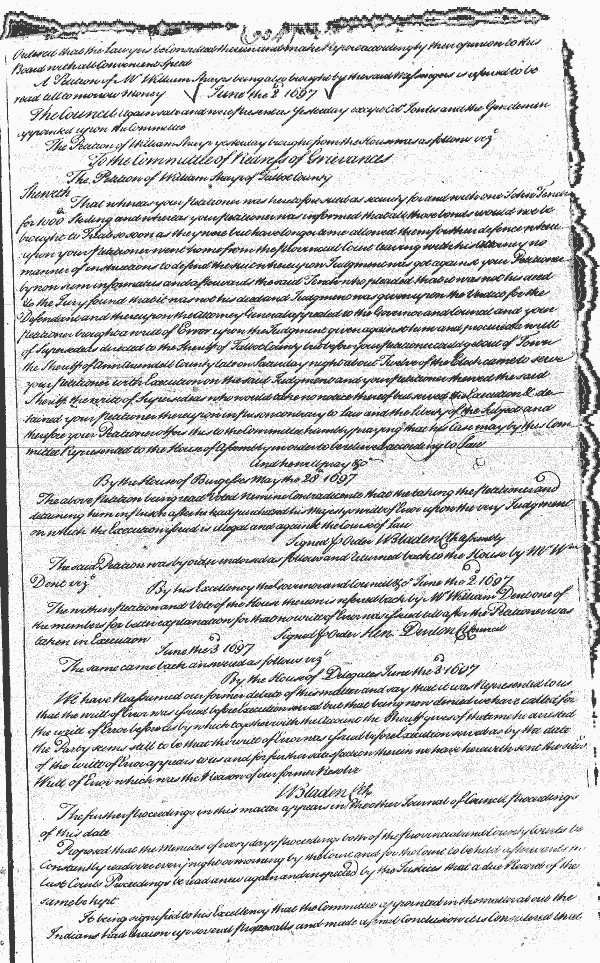 (934)
Ordered that the Lawyers be Consulted therein and make Report accordingly their opinion to this
Board with all Convenient Speed
A Petition of Mr William Sharpe being also brought by the said Messengers is referred to be
read till to morrow Morning
June the 2d 1697
The Council again sate and were present as yesterday except Col and the Gentlemen
appointed upon the Committee
The Petition of William Sharp yesterday brought from the House was as follows vizt
To the Committee of of Grievances
The Petition of William Sharp of Talbot County
Sheweth
That whereas your Petitioner was heretofore sued as security for and with one John
for 1000 Sterling and whereas your Petitioner was informed that all those bonds would not be
brought to Tryal so soon as they were but have longer time allowed them for their defence
upon your Petitioner went home from the Provincial Court leaving with his Attorney no
manner of instructions to defend the suit thereupon Judgment was got against your Petitioner
by non sum informatus and afterwards the said who pleaded that it was not his deed
& the Jury found that it was not his deed and Judgment was given upon the Verdict for the
Defendant and thereupon the Attorney General appealed to the Governor and Council and your
Petitioner brought a writt of Error upon the Judgment given against him and procured a writt
of Supersedeas directed to the Sheriff of Talbot County but before your Petitioner could get out of Town
the Sheriff of Ann Arundell County late on Saturday night about Twelve of the Clock came to serve
your Petitioner with Execution on the said Judgment and your Petitioner shewed the said
Sheriff the writt of Supersedeas who would take no notice thereof but served the Execution & de-
tained your Petitioner thereupon in prison contrary to Law and the Liberty of the Subject and
therefore your Petitioner offers this to the Committee humbly praying that his Case may by this Com-
mittee Represented to the House of Assembly in order to be relieved according to Law
And he will pray &c
By the House of Burgesses May the 28th 1697
The above Petition being read Voted Nemine Contradicente that the taking the Petitioner and
detaining him in Prison after he had purchased his Majestys writt of Error upon the very Judgment
on which the Execution issued is illegal and against the Course of Law
Signed p Order W Bladen Clk Assembly
The said Petition was by order endorsed as follows and returned back to the House by Mr Wm
Dent vizt
By his Excellency the Governor and Council &c June the 2d 1697
The within Petition and Vote of the House thereon is referred back by Mr William Dent one of
the members for better explanation for that no writt of Error was issued till after the Petitioner was
taken in Execution
Signed p Order Hen. Denton Cl Council
June the 3d 1697
The same came back answered as follows vizt
By the House of Delegates June the 3d 1697
We have Reassumed our former debate of this matter and say that it was Represented to us
that the writt of Error was issued before Execution served but that being now denied we have called for
the writt of Error before us by which together with the Account the Sheriff gives of the time he arrested
the Party seems still to be that the writt of Error was issued before Execution served as by the date
of the writt of Error appears and for further satisfaction therein we have herewith sent the said
Writt of Error which was the Reason of our former Resolve
W Bladen Clk
The further Proceedings in this matter appears in the other Journal of Council Proceedings
of this date
Proposed that the Minutes of every days Proceedings both of the Provincial and County Courts be
Constantly read over every night or morning by the Court and for the Court to be held afterwards
Last Courts Proceedings be read anew again and inspected by the Justices that a due Record of the
same be kept
It being signified to his Excellency that the Committee appointed in the matter about the
Indians had drawn up several Proposalls and made a final Conclusion it is Considered that